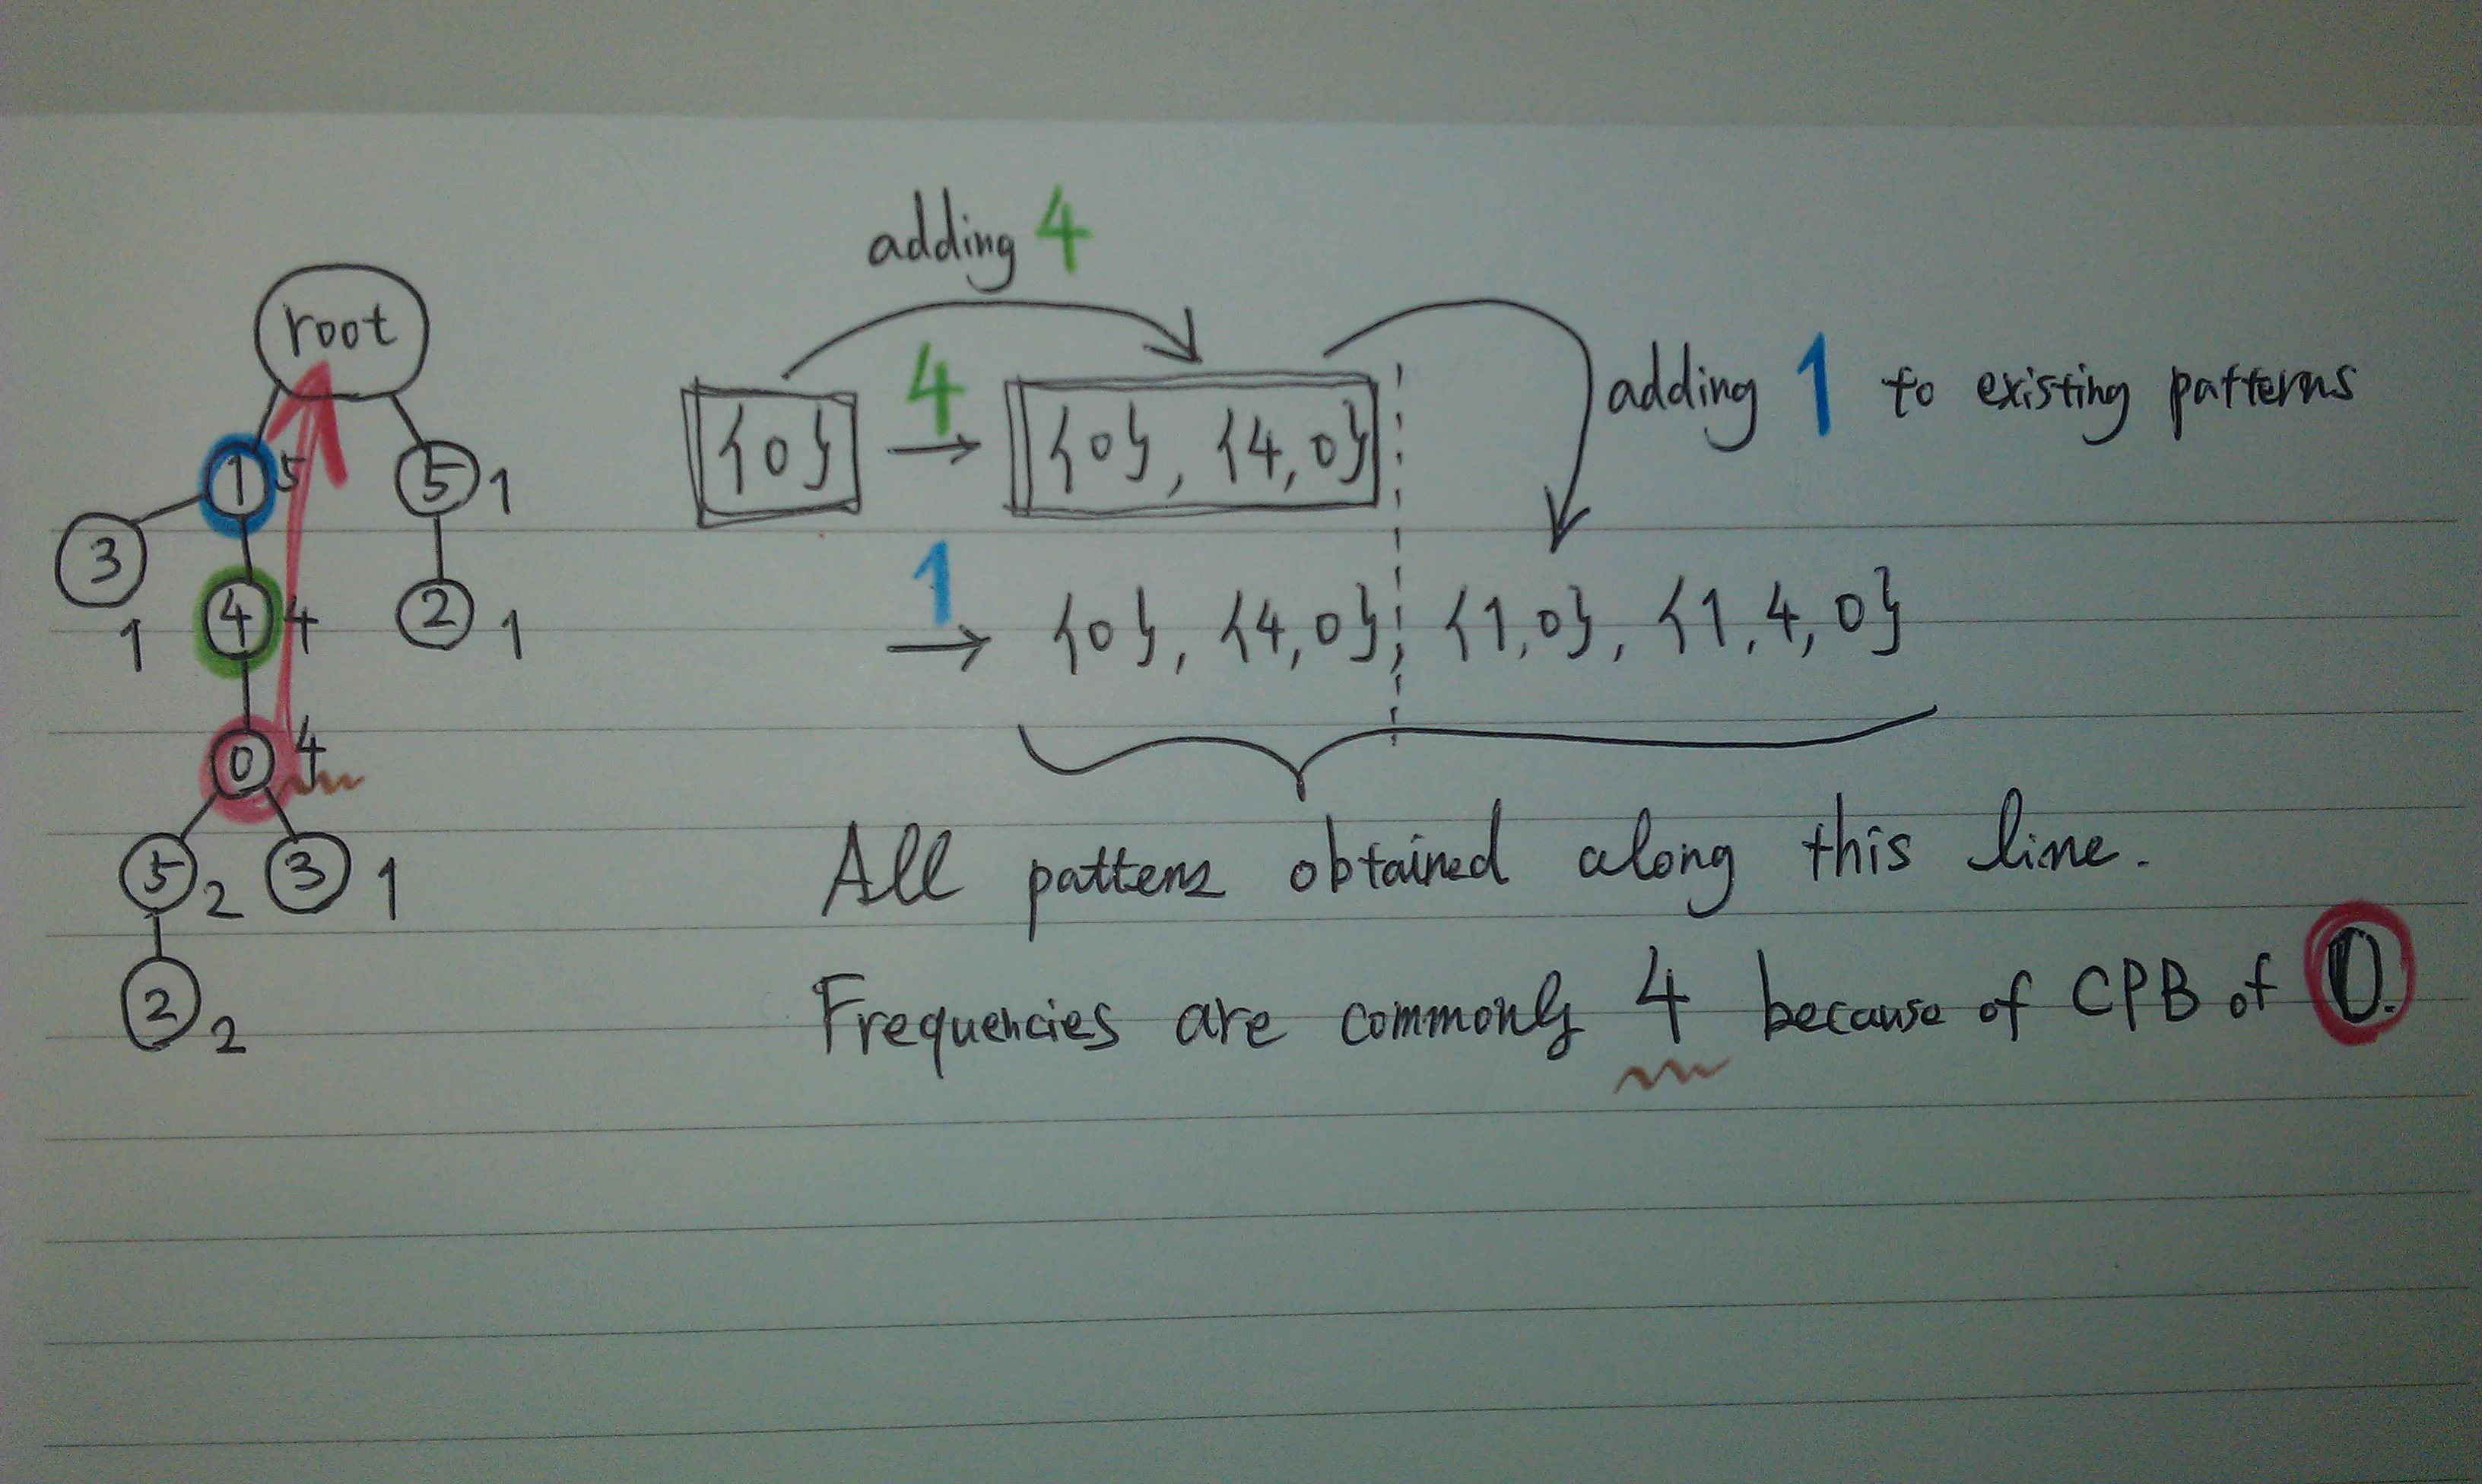 adding 4
root
4
{0} → {0}, {4,0}
adding 1 to existing patterns
1 5
5 1
3 1
4 4
2 1
1
→ {0}, {4,0}, {1,0}, {1,4,0}
0 4
5 2
3 1
2 2
All pattens obtained along this line.
Frequencies are commonly 4 because of CPB of 0.